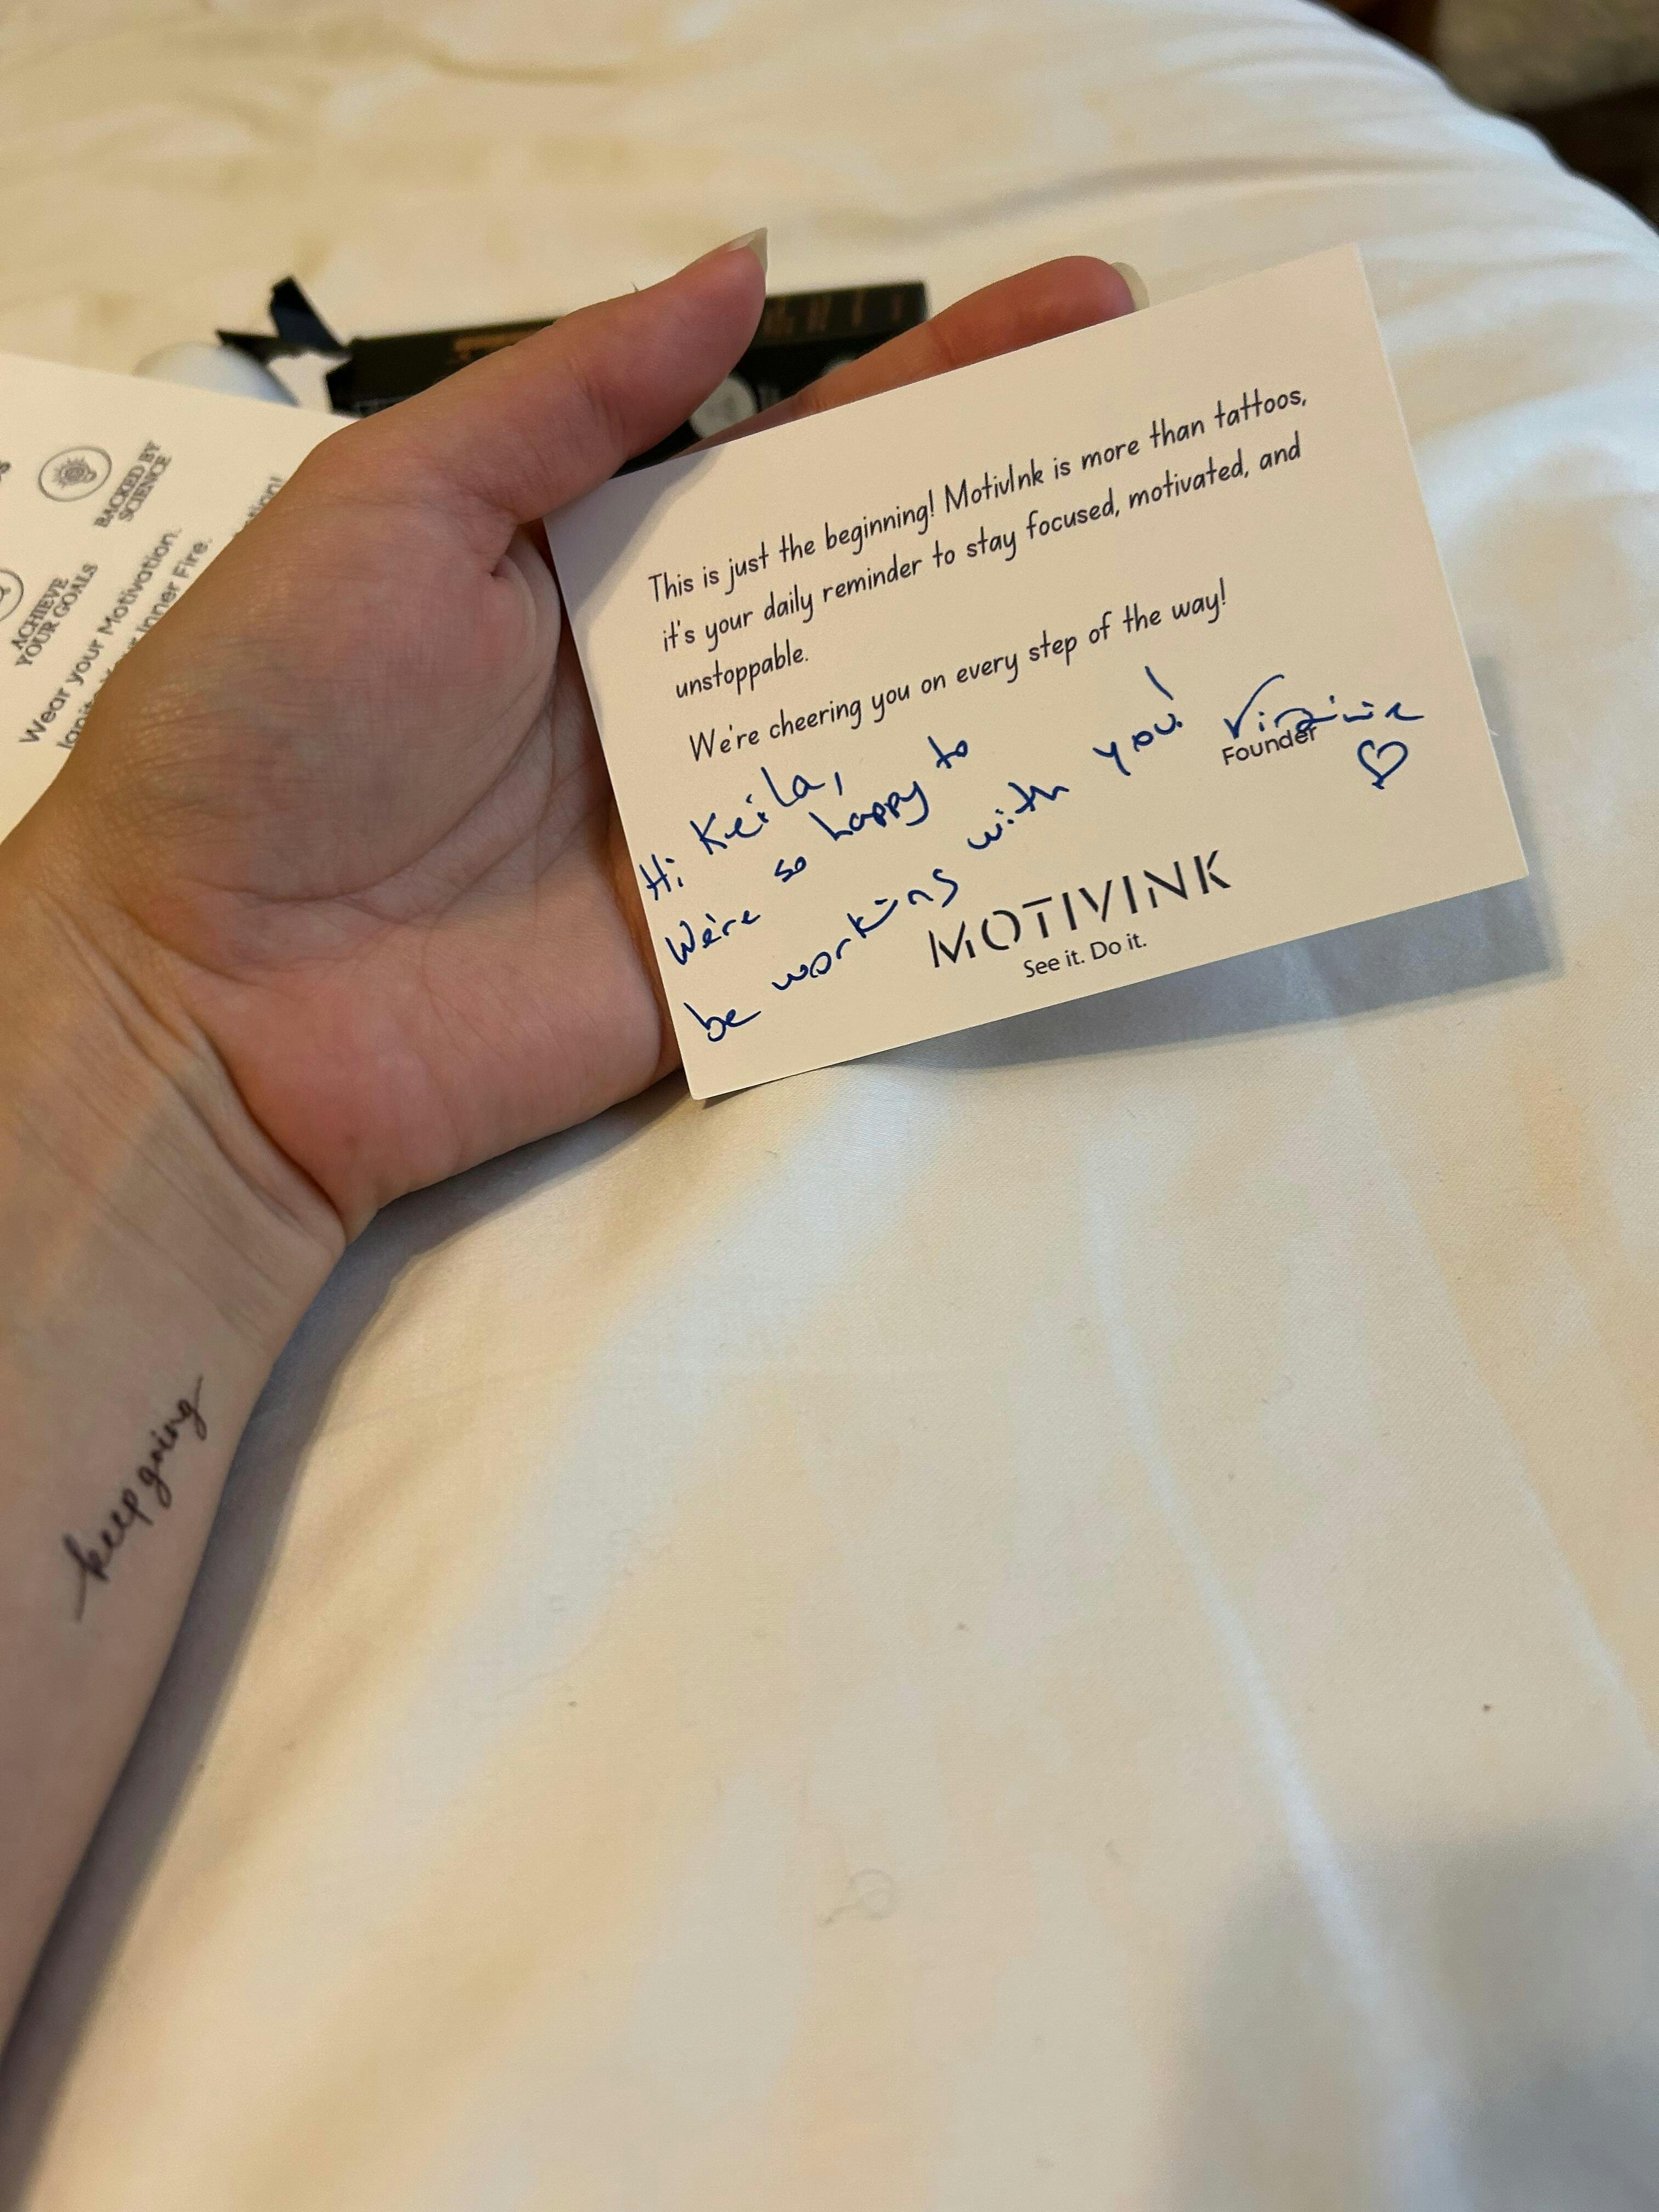 This is just the beginning! MotivInk is more than tattoos,
it's your daily reminder to stay focused, motivated, and
unstoppable.
We're cheering you on every step of the way!
Virginie
Founder
Hi Keila,
We're so happy to
be working with you!
MOTIVINK
See it. Do it.
BACKED BY
SCIENCE
ACHIEVE
YOUR GOALS
Wear your Motivation.
Inner Fire.
keep going